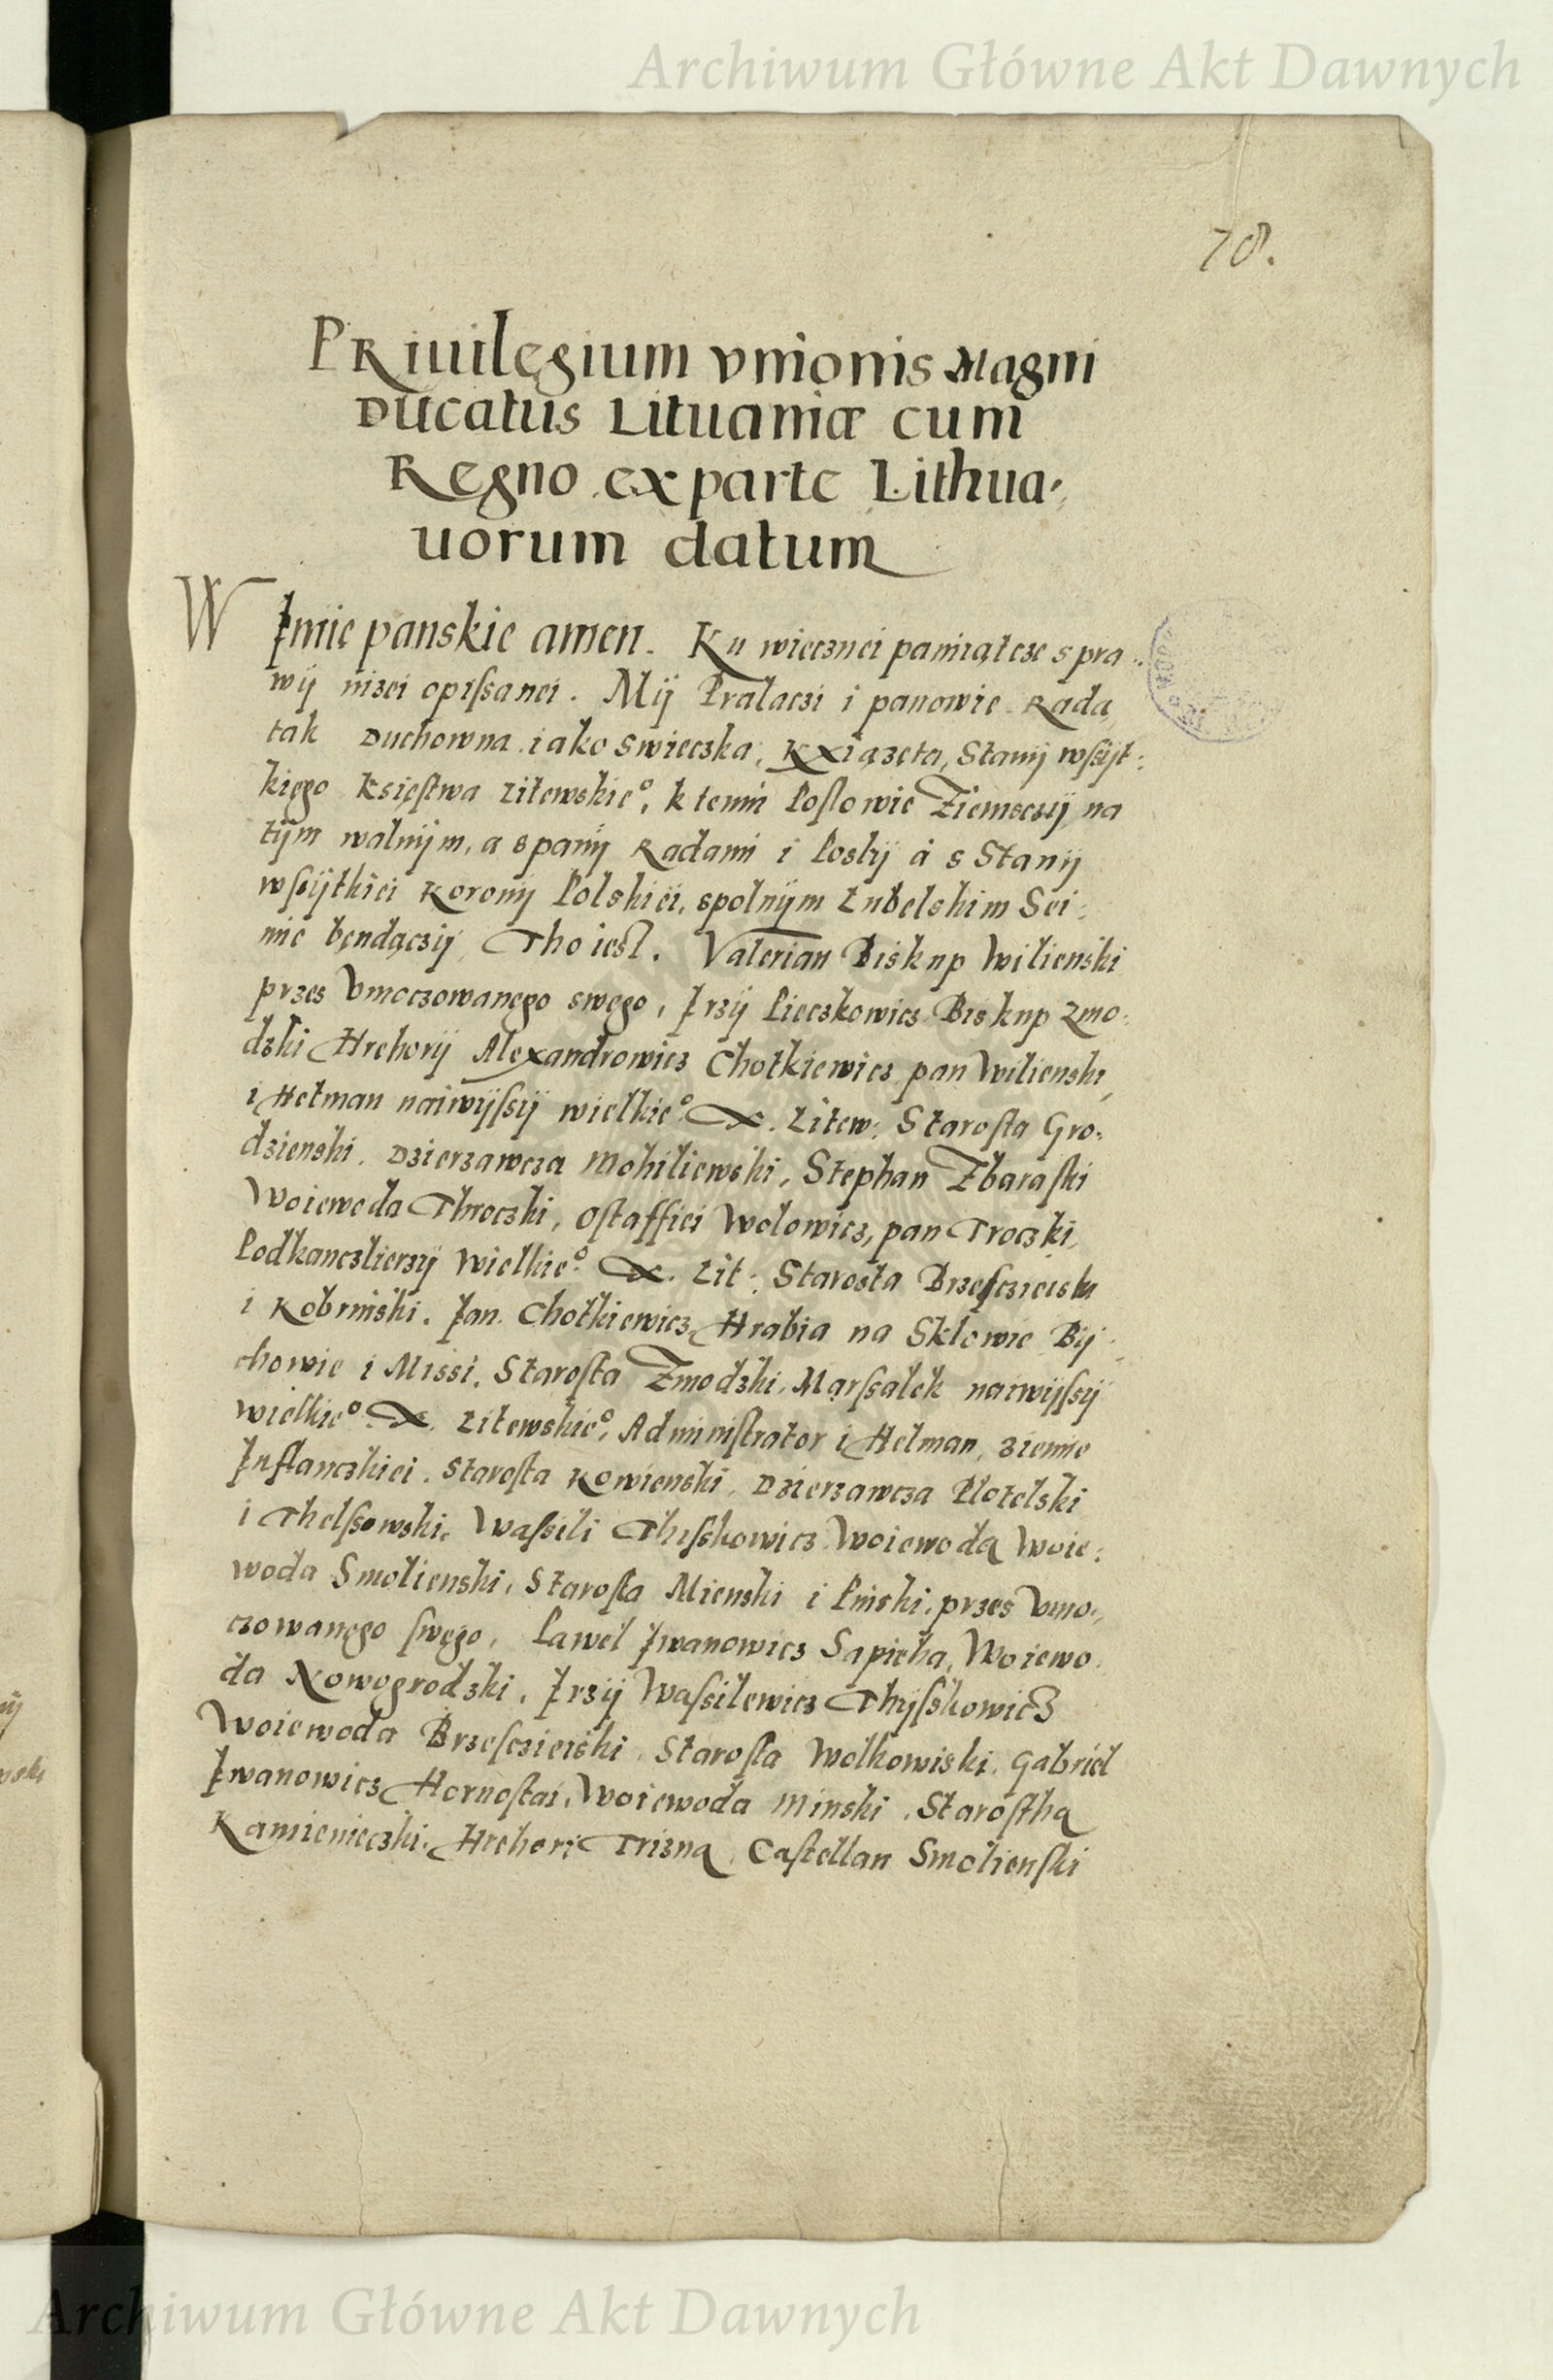 Archiwum Główne Akt Dawnych
78.
PRiuilegium vnionis Magni
Ducatus Lituaniæ cum
Regno ex parte Lithua,
uorum datum
W Imie panskie amen. Ku wiecznei pamiątcze spra
wÿ niżei opissanei. Mÿ Pralaczi i panowie Rada
tak Duchowna iako swieczka, Kxiązęta, Stanÿ wssÿt:
kiego Księstwa Litewskie°, k temu Poslowie Ziemsczÿ na
tÿm walnÿm, a s panÿ Radami i Poslÿ á s Stanÿ
wssÿtkiei Koronÿ Polskiei, spolnÿm Lubelskim Sei:
mie będączÿ, Tho iest. Valerian Biskup Wilienski
przes Vmoczowanego swego, Irzÿ Pieczkowicz Biskup Zmo:
dzki Hrehorÿ Alexandrowicz Chotkiewicz pan Wilienski,
i Hetman naiwÿssÿ wielkie° X. Litew: Starosta Gro:
dzienski, Dzierzawcza Mohiliewski, Stephan Zbaraski
Woiewoda Throczki, Ostaffiei Wolowicz, pan Troczki,
Podkanczlierzÿ Wielkie° X. Lit: Starosta Brzesczieiski
i Kobrinski. Jan Chotkiewicz Hrabia na Sklowie Bÿ:
chowie i Missi, Starosta Zmodzki, Marssalek naiwÿssÿ
wielkie° X. Litewskie°, Administrator i Hetman, ziemie
Inflanczkiei, Starosta Kowienski, Dzierzawcza Plotelski
i Thelssowski, Wassili Thisskowicz Woiewoda Woie:
woda Smolienski, Starosta Mienski i Pinski, przes Vmo,
czowanego swego, Pawel Iwanowicz Sapieha, Woiewo
da Nowogrodzki, Irzÿ Wassilewicz Thÿsskowicz
Woiewoda Brzesczieiski, Starosta Wolkowiski, Gabriel
Iwanowicz Hornostai, Woiewoda Minski, Starostha
Kamienieczki, Hrehori Trizna, Castellan Smolienski
Archiwum Główne Akt Dawnych